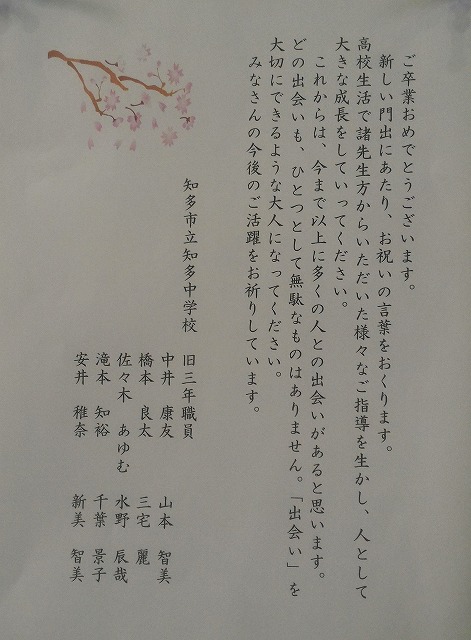 ご卒業おめでとうございます。
新しい門出にあたり、お祝いの言葉をおくります。
高校生活で諸先生方からいただいた様々なご指導を生かし、人として
大きな成長をしていってください。
これからは、今まで以上に多くの人との出会いがあると思います。
どの出会いも、ひとつとして無駄なものはありません。「出会い」を
大切にできるような大人になってください。
みなさんの今後のご活躍をお祈りしています。
知多市立知多中学校 旧三年職員
中井 康友 山本 智美
橋本 良太 三宅 麗
佐々木 あゆむ 水野 辰哉
滝本 知裕 千葉 景子
安井 稚奈 新美 智美